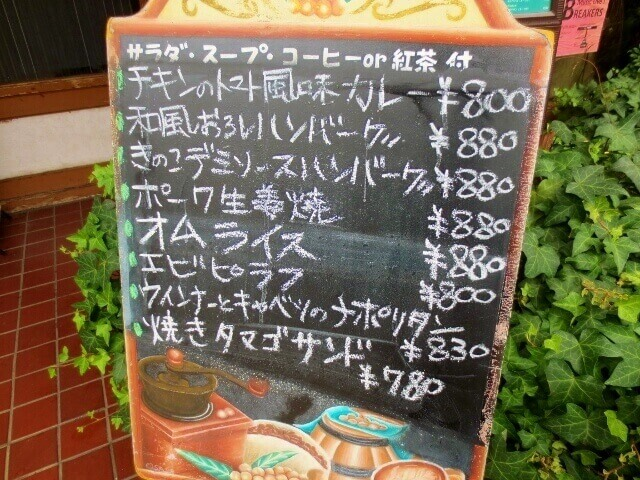 サラダ・スープ・コーヒーor紅茶 付
チキンのトマト風味カレー ¥800
和風おろしハンバーグ ¥880
きのこデミソースハンバーグ ¥880
ポーク生姜焼 ¥880
オムライス ¥880
エビピラフ ¥800
ウインナーとキャベツのナポリタン ¥830
焼きタマゴサンド ¥780
BREAKERS